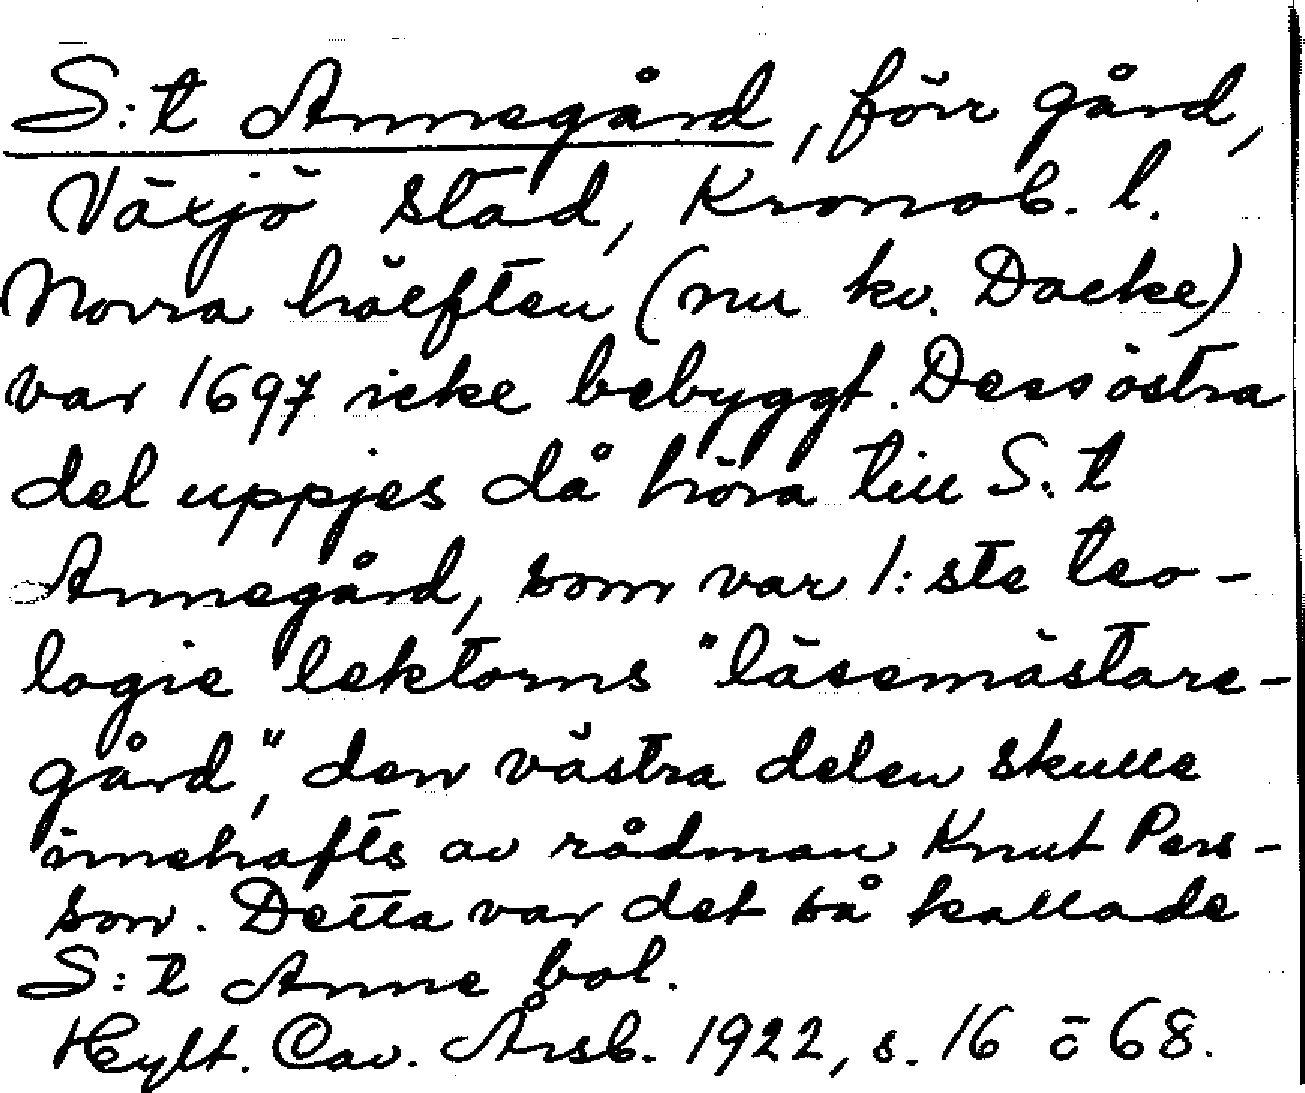 S:t Annegård, förr gård,
Växjö stad, Kronob. l.
Norra hälften (nu kv. Dacke)
var 1697 icke bebyggt. Dess östra
del uppjes då höra till S:t
Annegård, som var 1:ste teo-
logie lektorns "läsemästare-
gård", den västra delen skulle
innehafts av rådman Knut Pers-
son. Detta var det så kallade
S:t Anne bol.
Hylt. Cav. Årsb. 1922, s. 16 o 68.